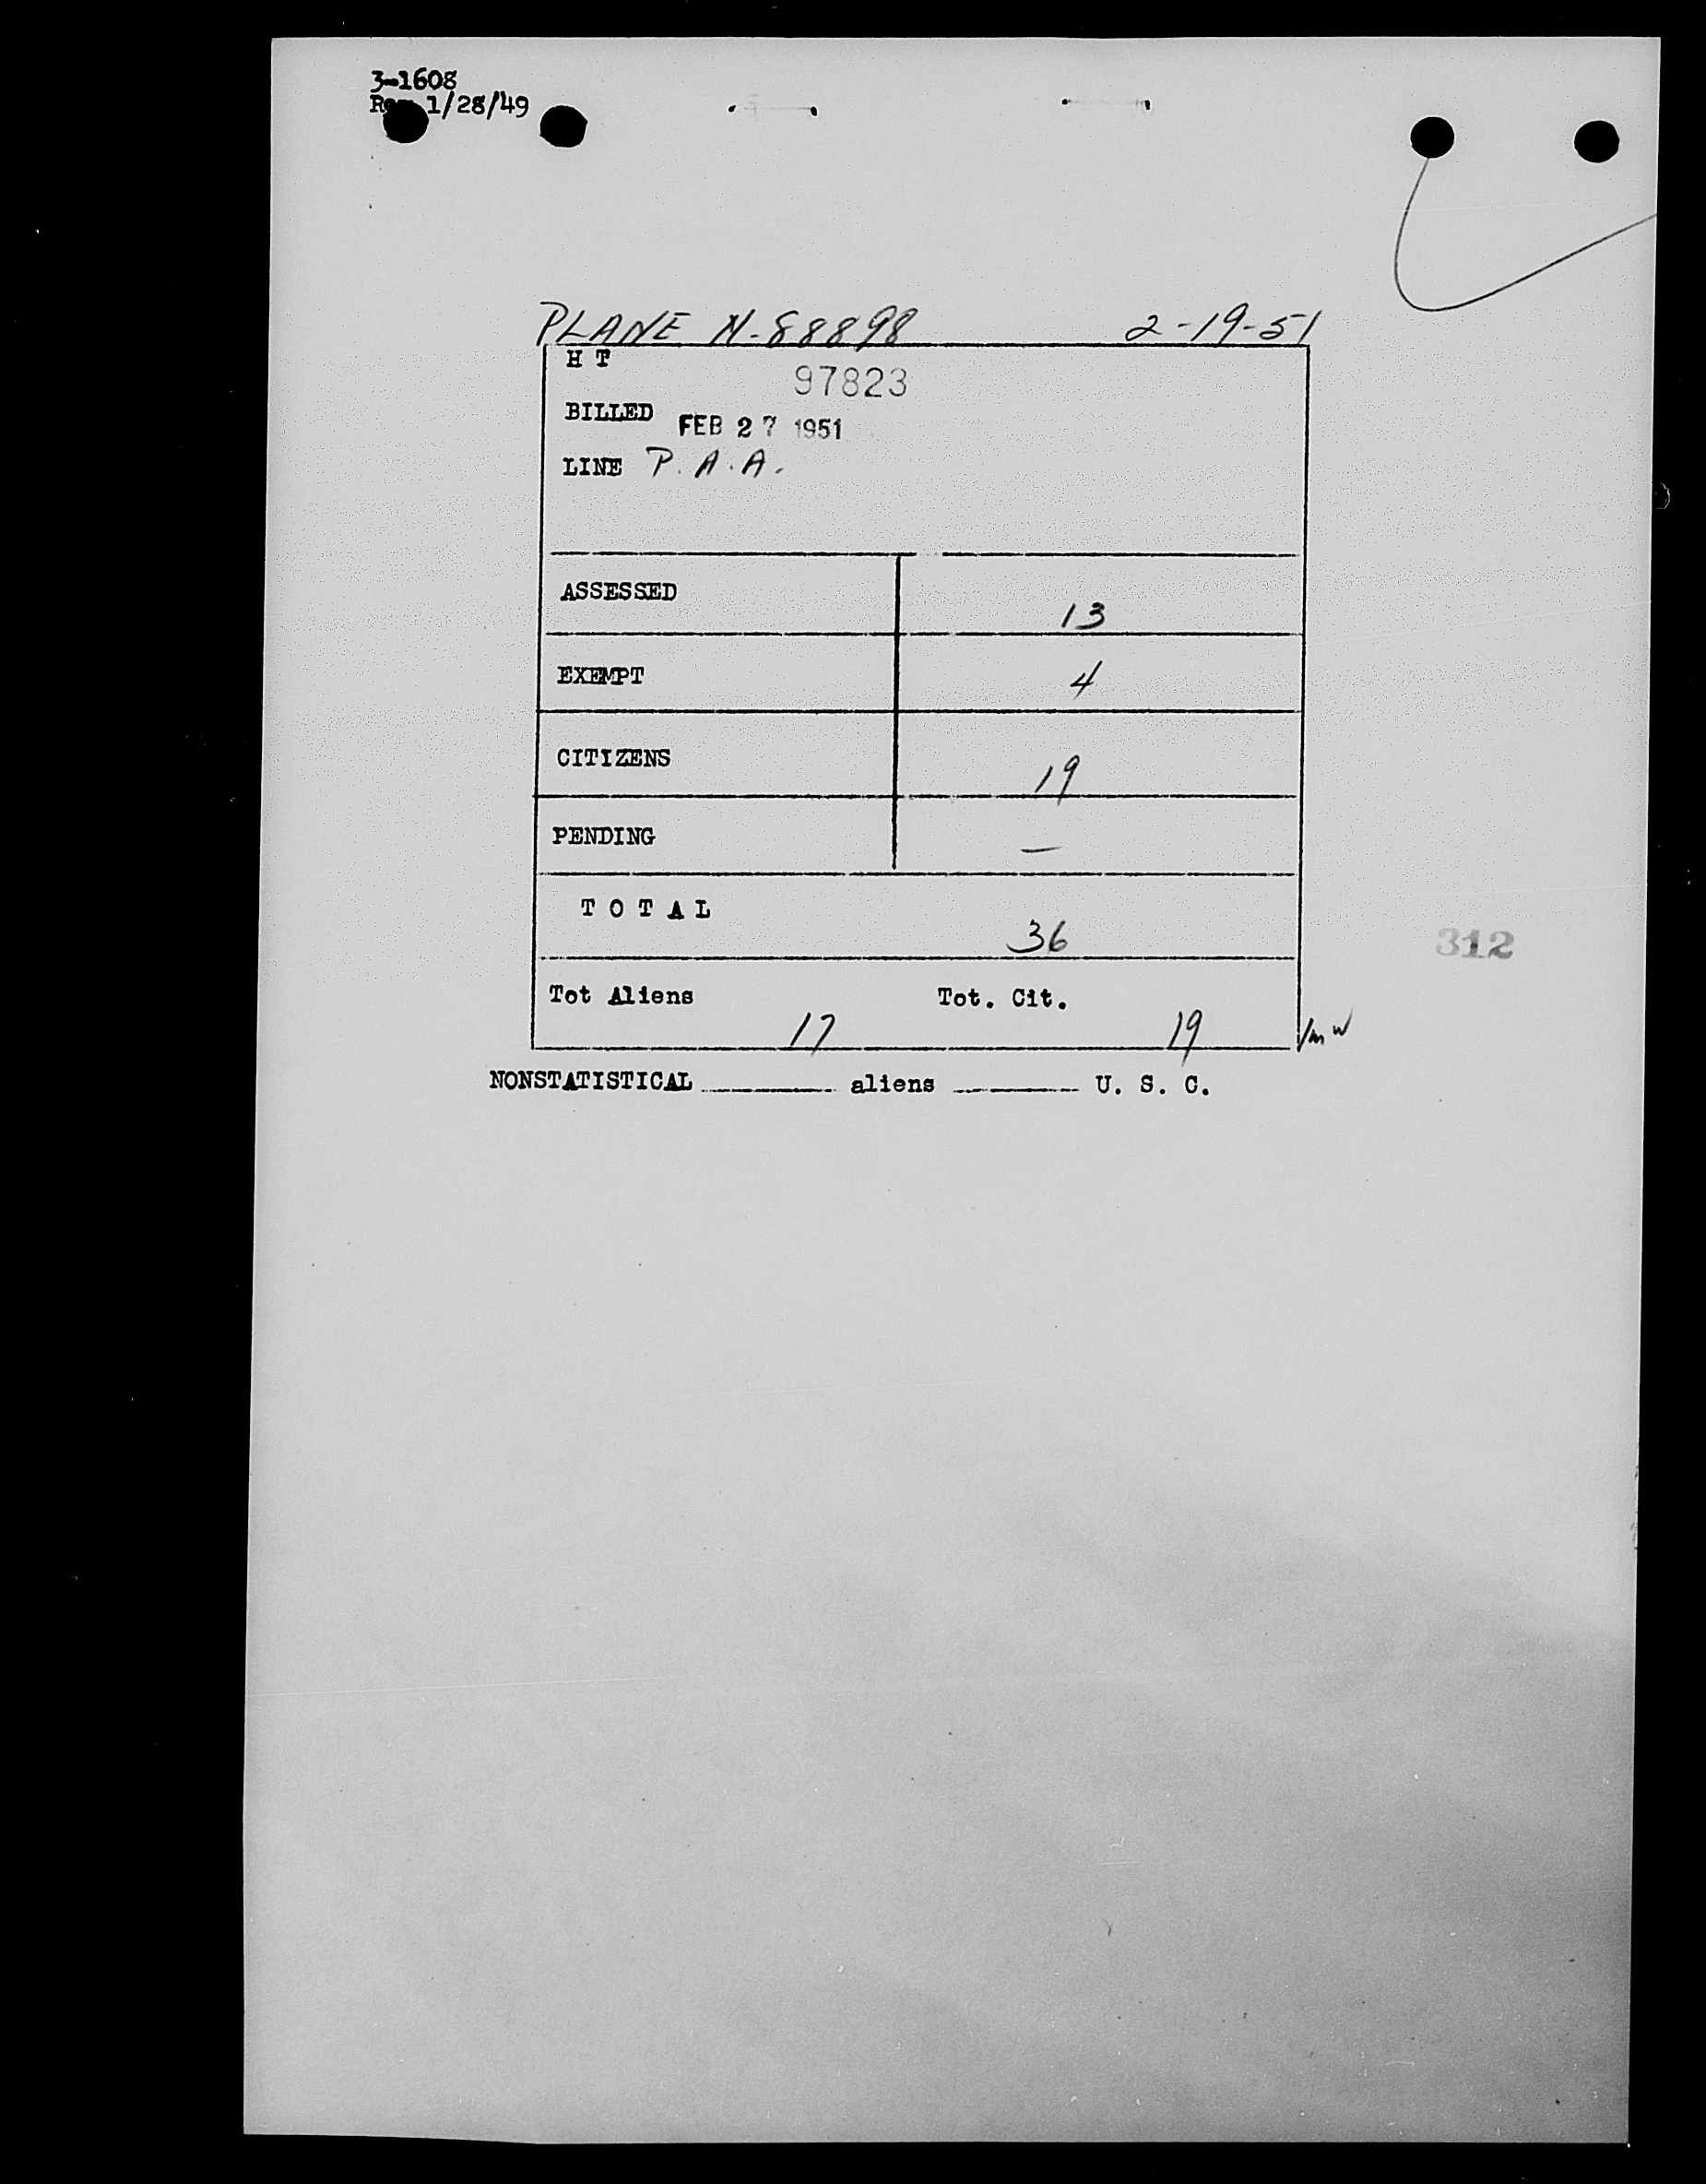 3-1608
1/28/49
PLANE N-88898 2-19-51
H T
97823
BILLED FEB 27 1951
LINE P.A.A.
ASSESSED 13
EXEMPT 4
CITIZENS 19
PENDING —
T O T A L 36
312
Tot Aliens 17 Tot. Cit. 19 /mw
NONSTATISTICAL ________ aliens ________ U. S. C.